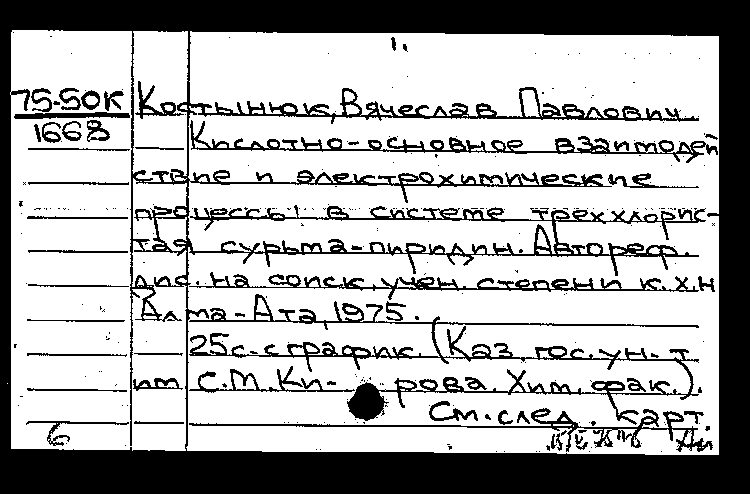 1.
75-50К Костынюк, Вячеслав Павлович.
1668 Кислотно-основное взаимодей
ствие и электрохимические
процессы в системе треххлорис-
тая сурьма-пиридин. Автореф.
дис. на соиск. учен. степени к.х.н
Алма-Ата, 1975.
25с. с график. (Каз. гос. ун-т
им С.М. Ки- рова. Хим. фак.).
См. след. карт.
6